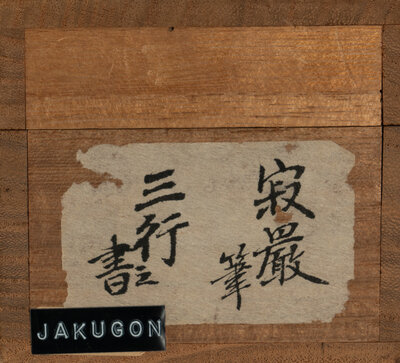 寂嚴筆
三行書之
JAKUGON